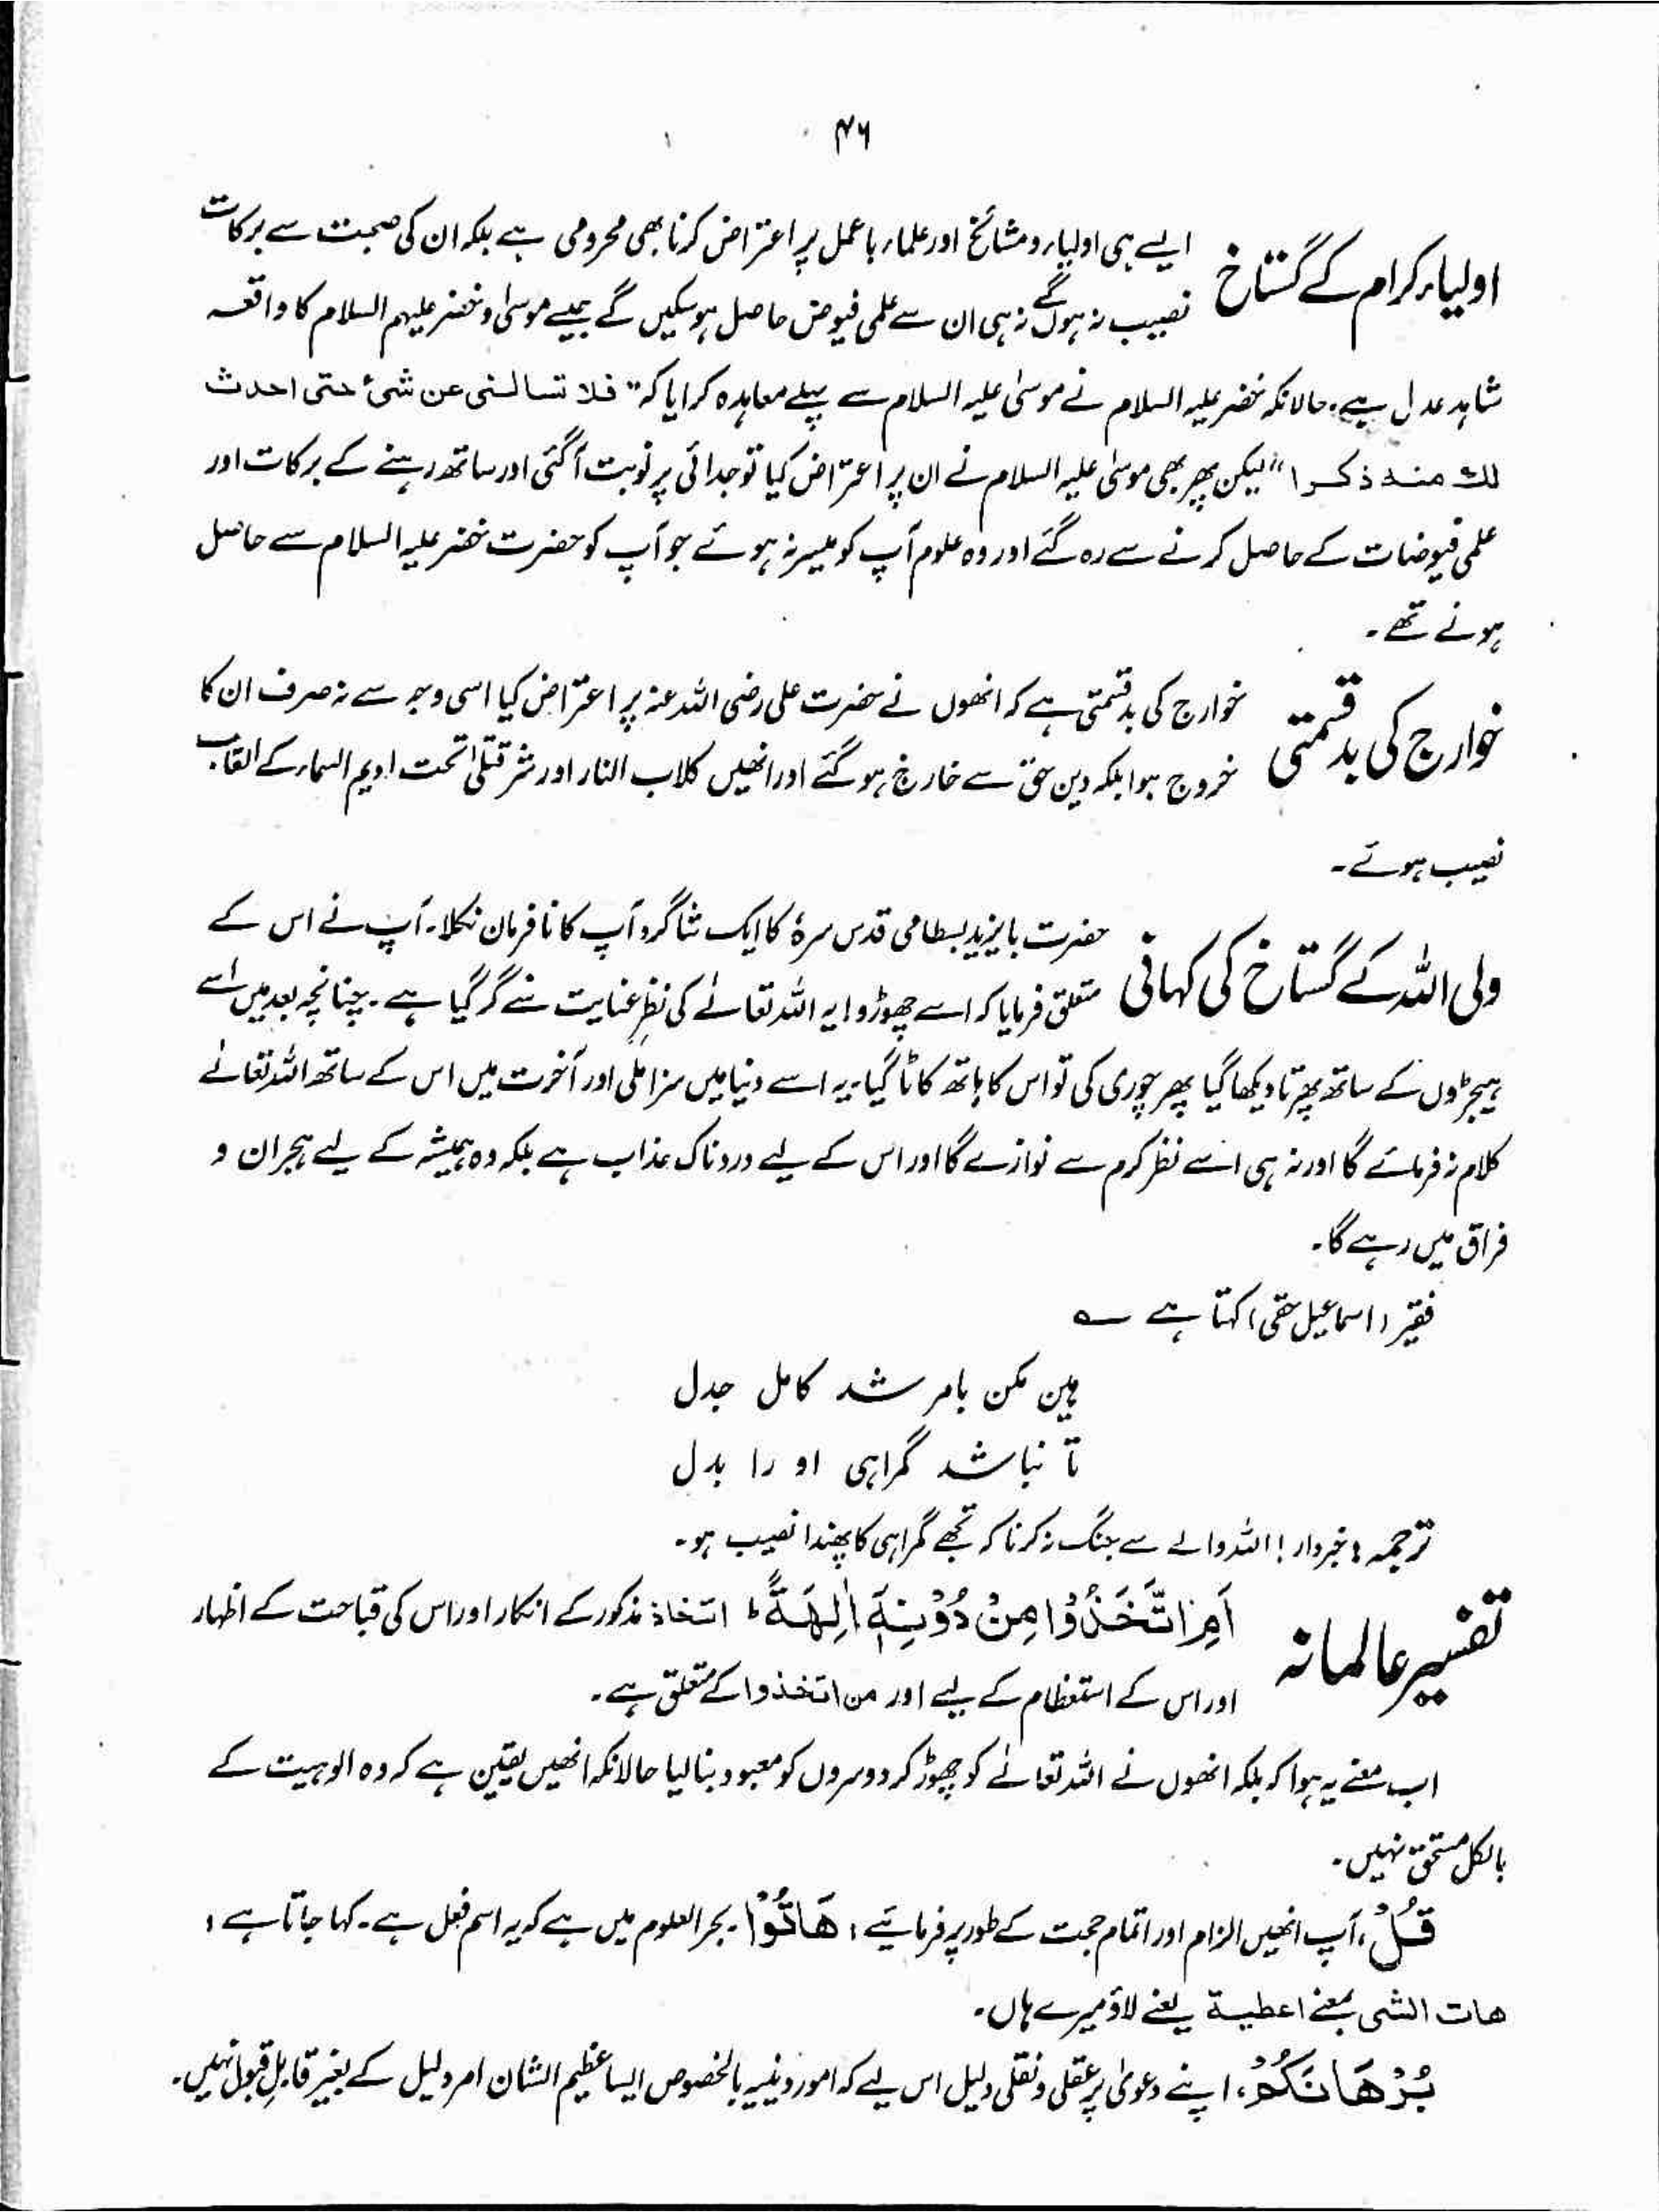 ۴۶
اولیاء کرام کے گستاخ
ایسے ہی اولیاء و مشائخ اور علماء باعمل پر اعتراض کرنا بھی محرومی ہے بلکہ ان کی صحبت سے برکات
نصیب نہ ہوں گے نہ ہی ان سے علمی فیوض حاصل ہو سکیں گے جیسے موسیٰ و خضر علیہم السلام کا واقعہ
شاہد عدل ہے۔ حالانکہ خضر علیہ السلام نے موسیٰ علیہ السلام سے پہلے معاہدہ کرایا کہ "فلا تسالنی عن شیٔ حتی احدث
لك منه ذکرا" لیکن پھر بھی موسیٰ علیہ السلام نے ان پر اعتراض کیا تو جدائی پر نوبت آگئی اور ساتھ رہنے کے برکات اور
علمی فیوضات کے حاصل کرنے سے رہ گئے اور وہ علوم آپ کو میسر نہ ہوئے جو آپ کو حضرت خضر علیہ السلام سے حاصل
ہونے تھے۔
خوارج کی بدقسمتی
خوارج کی بدقسمتی ہے کہ انھوں نے حضرت علی رضی اللہ عنہ پر اعتراض کیا اسی وجہ سے نہ صرف ان کا
خروج ہوا بلکہ دین حق سے خارج ہوگئے اور انھیں کلاب النار اور شر قتلیٰ تحت ادیم السماء کے القاب
نصیب ہوئے۔
ولی اللہ کے گستاخ کی کہانی
حضرت بایزید بسطامی قدس سرہٗ کا ایک شاگرد آپ کا نافرمان نکلا۔ آپ نے اس کے
متعلق فرمایا کہ اسے چھوڑو ایہ اللہ تعالےٰ کی نظرِ عنایت سے گر گیا ہے۔ چنانچہ بعد میں اسے
ہیجڑوں کے ساتھ پھرتا دیکھا گیا پھر چوری کی تو اس کا ہاتھ کاٹا گیا۔ یہ اسے دنیا میں سزا ملی اور آخرت میں اس کے ساتھ اللہ تعالےٰ
کلام نہ فرمائے گا اور نہ ہی اسے نظر کرم سے نوازے گا اور اس کے لیے دردناک عذاب ہے بلکہ وہ ہمیشہ کے لیے ہجران و
فراق میں رہے گا۔
فقیر (اسماعیل حقی) کہتا ہے ؎
ہین مکن بامرشد کامل جدل
تا نباشد گمراہی او را بدل
ترجمہ: خبردار! اللہ والے سے جنگ نہ کرنا کہ تجھے گمراہی کا پھندا نصیب ہو۔
تفسیر عالمانہ
اَمِ اتَّخَذُوْا مِنْ دُوْنِهٖۤ اٰلِهَةً ؕ اتخاذ مذکور کے انکار اور اس کی قباحت کے اظہار
اور اس کے استعظام کے لیے اور من اتخذوا کے متعلق ہے۔
اب معنے یہ ہوا کہ بلکہ انھوں نے اللہ تعالےٰ کو چھوڑ کر دوسروں کو معبود بنا لیا حالانکہ انھیں یقین ہے کہ وہ الوہیت کے
بالکل مستحق نہیں۔
قُلْ، آپ انھیں الزام اور اتمام حجت کے طور پر فرمائیے: هَاتُوْا۔ بحر العلوم میں ہے کہ یہ اسم فعل ہے۔ کہا جاتا ہے:
هات الشی بمعنے اعطیة یعنے لاؤ میرے ہاں۔
بُرْهَانَكُمْ، اپنے دعویٰ پر عقلی و نقلی دلیل اس لیے کہ امور دینیہ بالخصوص ایسا عظیم الشان امر دلیل کے بغیر قابلِ قبول نہیں۔